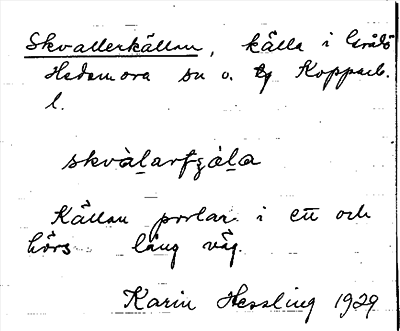 Skvallerkällan, källa i Grådö
Hedemora sn o. Kopparb.
l.
skvàlarfʒäla
Källan porlar i ett och
hörs lång väg.
Karin Hessling 1929